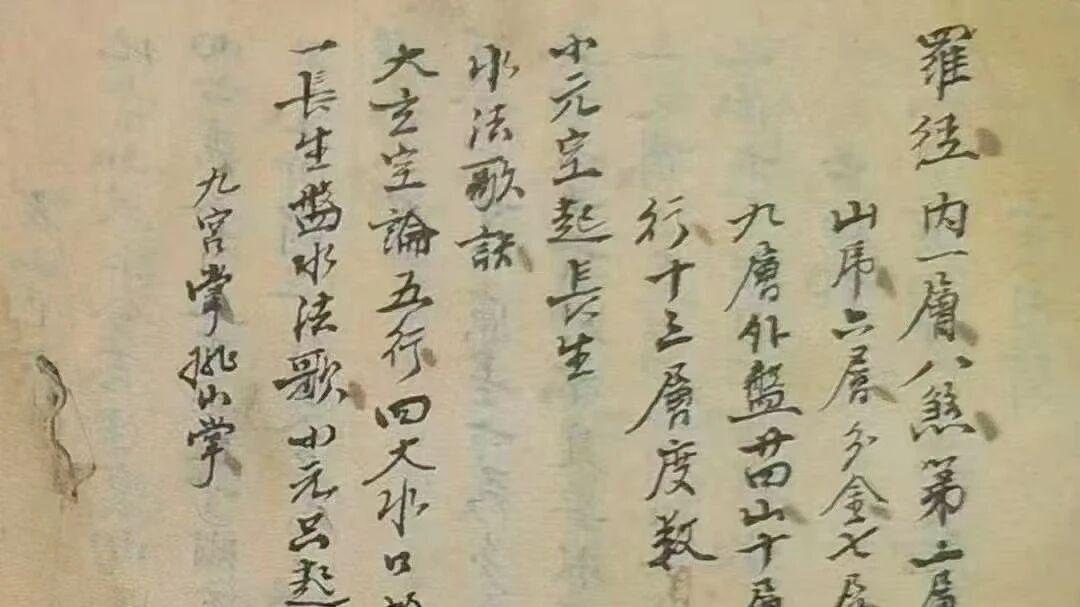 羅経内一層八煞第二層
山歸六層分金七層
九層外盤廿四山十層
行十三層度数
小元空起長生
水法歌訣
大玄空論五行四大水口
一長生盤水法歌 廿元吕起
九宮掌 挑山掌